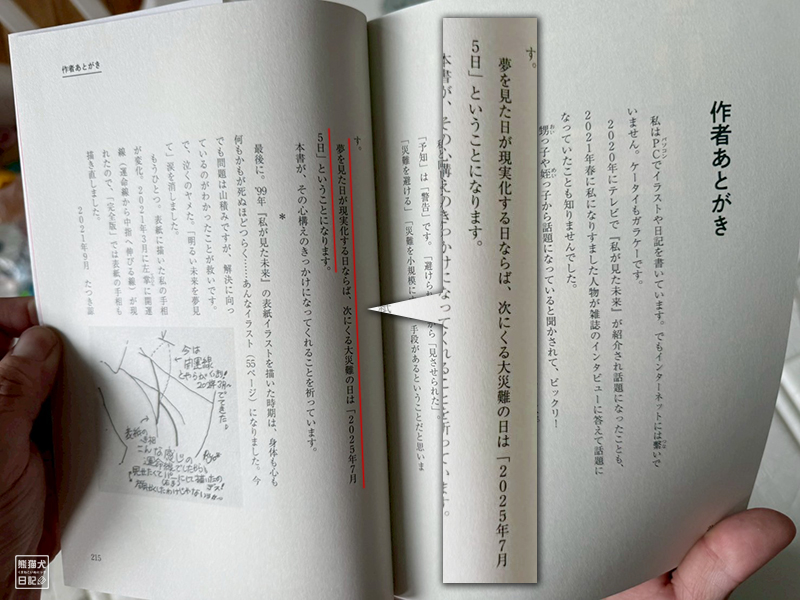 作者あとがき
私はPCでイラストや日記を書いています。でもインターネットには繋いで
いません。ケータイもガラケーです。
2020年にテレビで『私が見た未来』が紹介され話題になったことも、
2021年春に私になりすました人物が雑誌のインタビューに答えて話題に
なっていたことも知りませんでした。
甥っ子や姪っ子から話題になっていると聞かされて、ビックリー
す。
夢を見た日が現実化する日ならば、次にくる大災難の日は「2025年7月
5日」ということになります。
本書が、その心構えのきっかけになってくれることを祈っています。
「予知」は「警告」です。「避けられ
から「見させられた」
「災難を避ける」「災難を小規模に
手段があるということだと思いま
作者あとがき
す。
夢を見た日が現実化する日ならば、次にくる大災難の日は「2025年7月
5日」ということになります。
本書が、その心構えのきっかけになってくれることを祈っています。
*
最後に。'99年『私が見た未来』の表紙イラストを描いた時期は、身体も心も
何もかもが死ぬほどつらく……あんなイラスト(55ページ)になりました。今
でも問題は山積みですが、解決に向っ
ているのがわかったことが救いです。
で、泣くのヤメた。「明るい未来を夢見
て」涙を消しました。
もうひとつ。表紙に描いた私の手相
が変化。2021年3月に左掌に開運
線(運命線から中指へ伸びる線)が現
れたので、「完全版」では表紙の手相も
描き直しました。
2021年9月 たつき諒
今は
開運線
表紙の
手相
こんな感じの
215
熊猫犬
日記